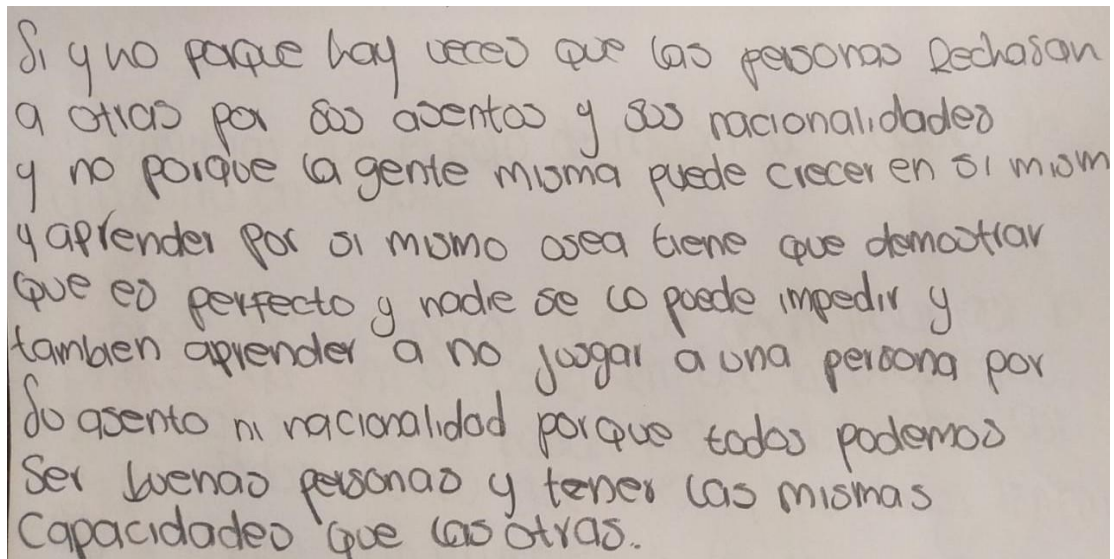 Si y no porque hay veces que las personas Rechasan
a otras por sus asentos y sus nacionalidades
y no porque la gente misma puede crecer en si mism
y aprender por si mismo osea tiene que demostrar
que es perfecto y nadie se lo puede impedir y
tambien aprender a no jusgar a una persona por
su asento ni nacionalidad porque todos podemos
ser buenas personas y tener las mismas
capacidades que las otras.